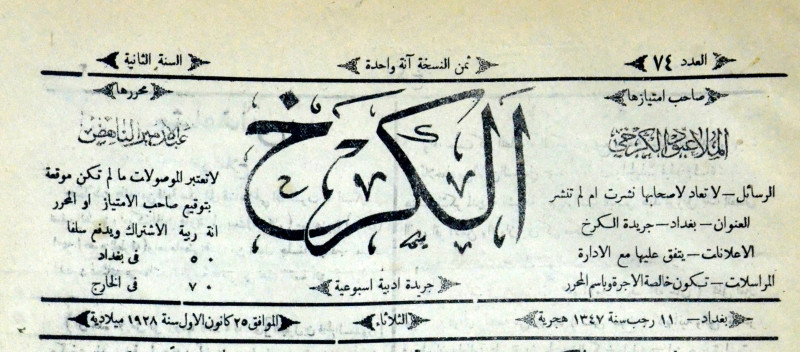 العدد ٧٤
ثمن النسخة آنة واحدة
السنة الثانية
صاحب امتيازها
الملا عبود الكرخي
الرسائل — لا تعاد لاصحابها نشرت ام لم تنشر
العنوان — بغداد — جريدة الكرخ
الاعلانات — يتفق عليها مع الادارة
المراسلات — تكون خالصة الاجرة وباسم المحرر
الكرخ
جريدة ادبية اسبوعية
محررها
عبدالامير الناهض
لا تعتبر الموصولات ما لم تكن موقعة
بتوقيع صاحب الامتياز او المحرر
انة ربية الاشتراك ويدفع سلفا
٥٠ فى بغداد
٧٠ فى الخارج
بغداد — ١١ رجب سنة ١٣٤٧ هجرية
الثلاثاء
الموافق ٢٥ كانون الاول سنة ١٩٢٨ ميلادية